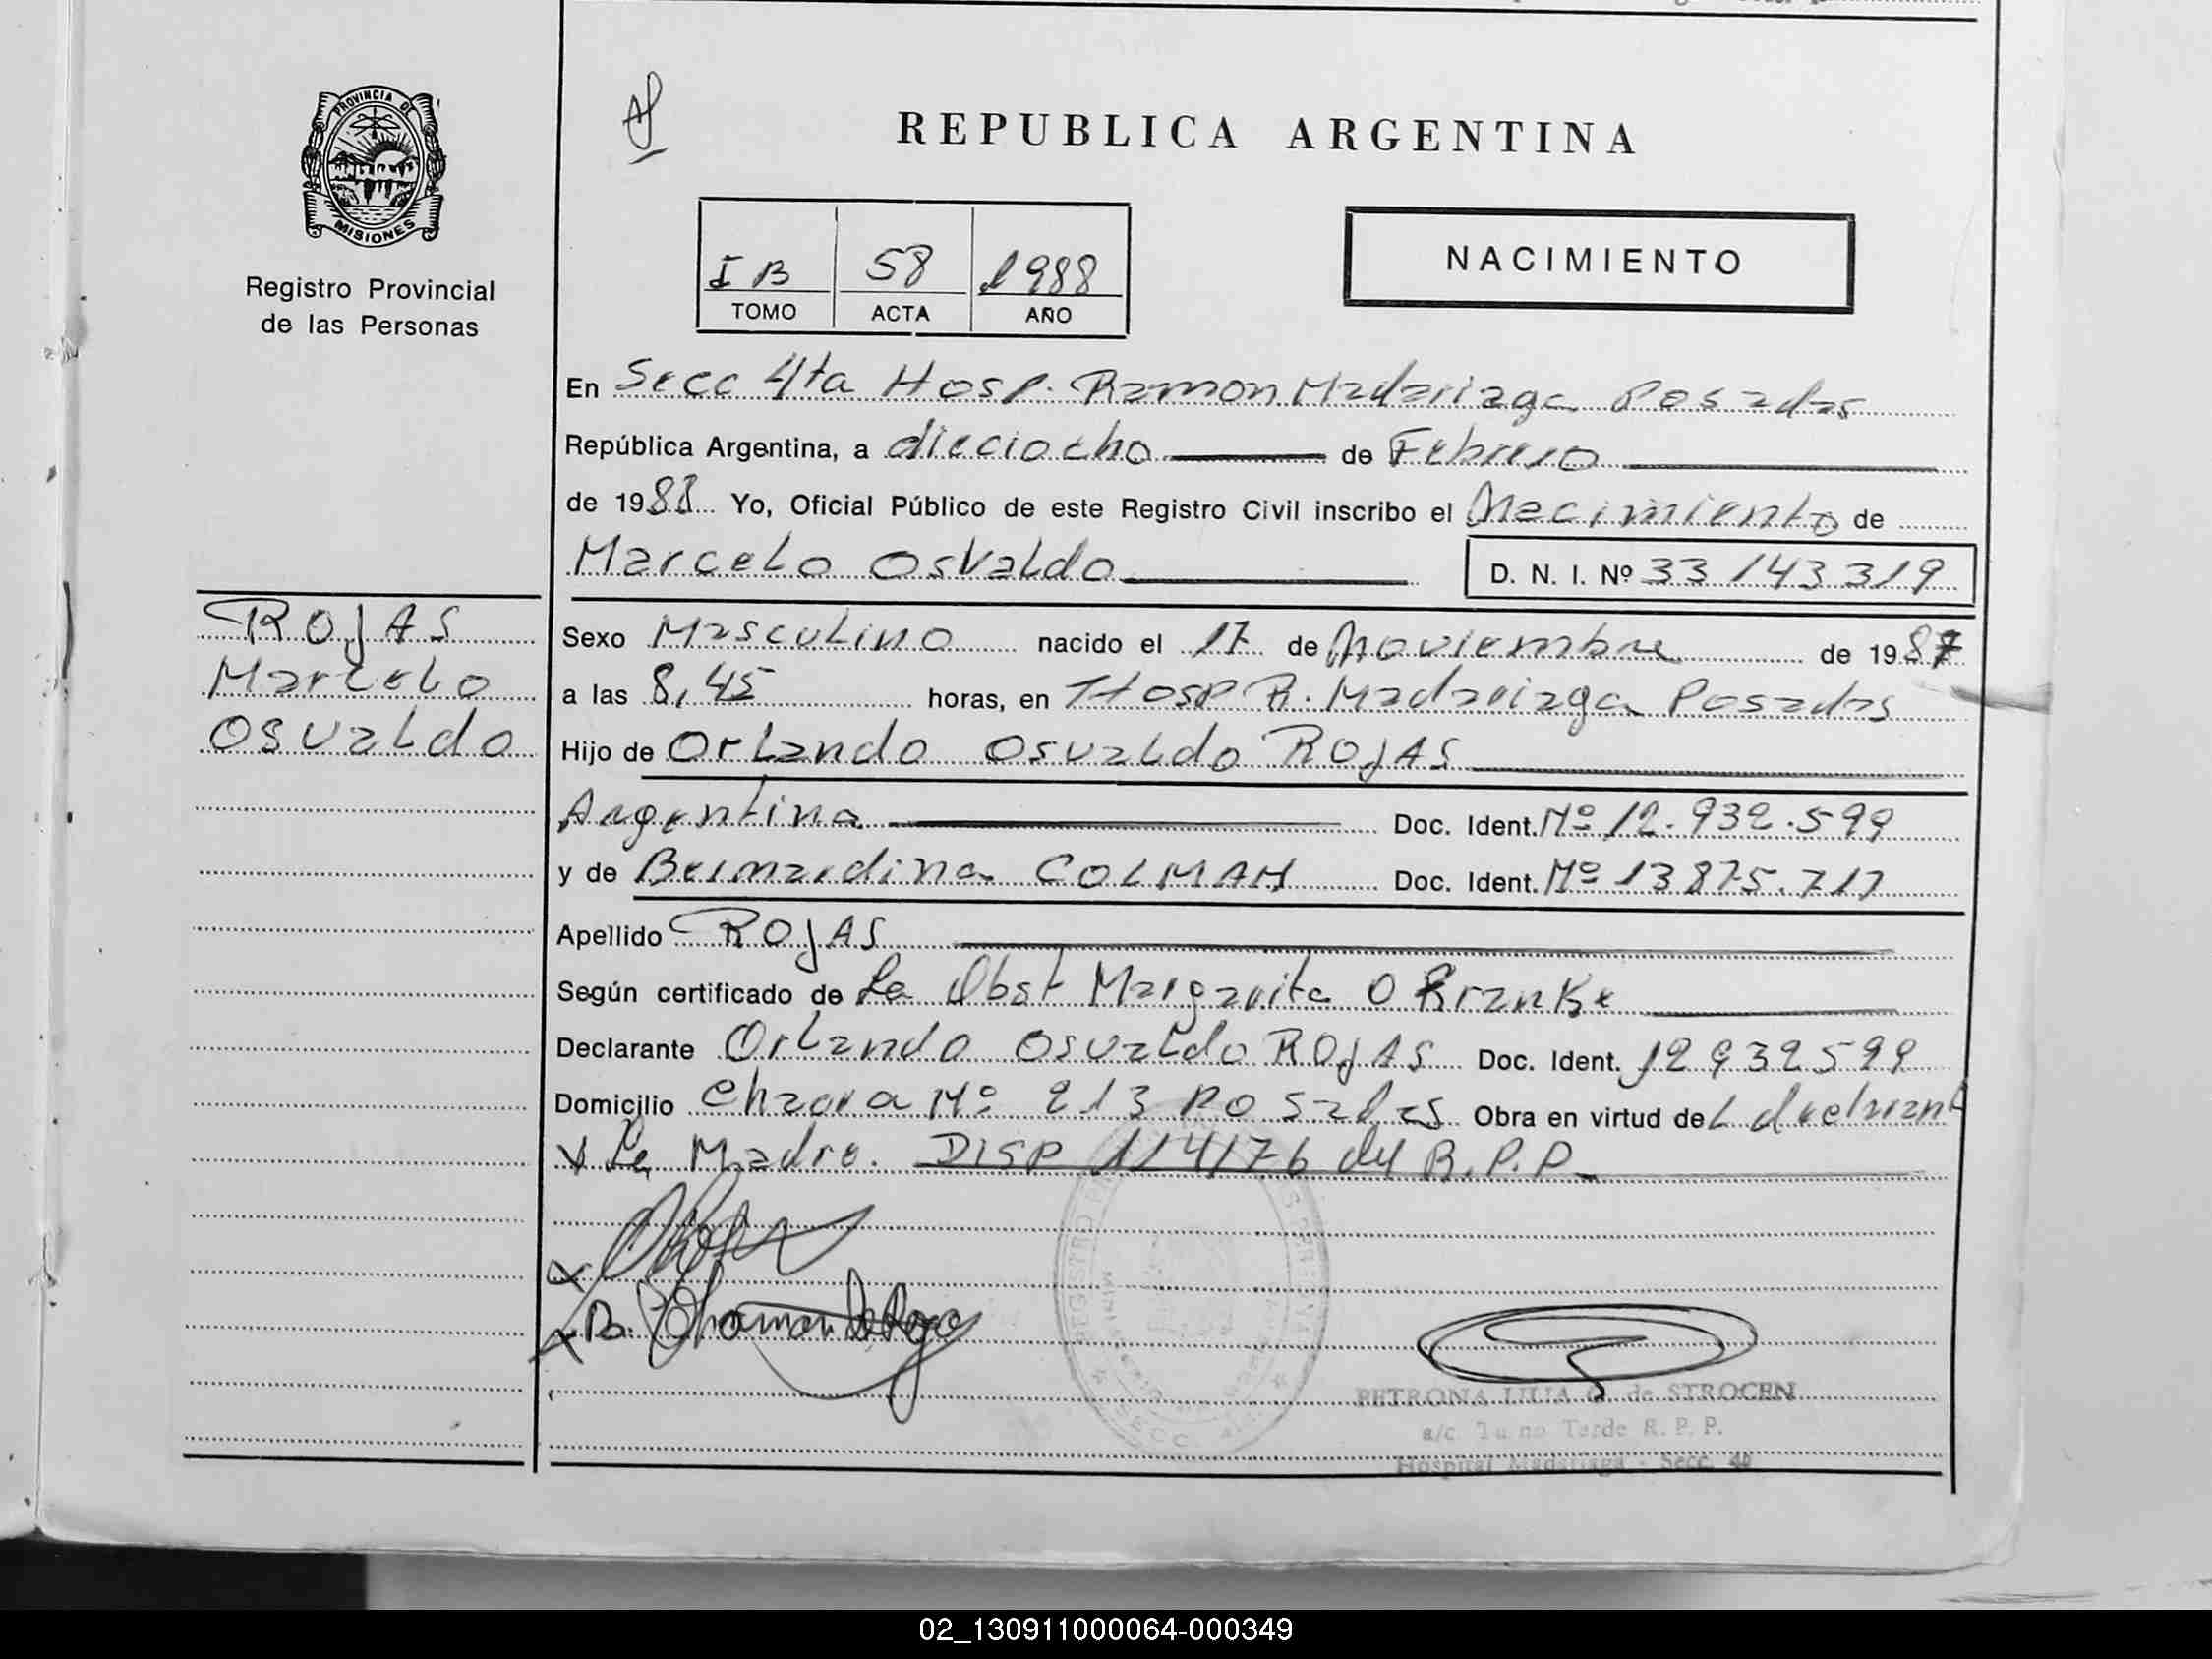 PROVINCIA DE
MISIONES
Registro Provincial
de las Personas
REPUBLICA ARGENTINA
NACIMIENTO
I B 58 1988
TOMO ACTA AÑO
En Secc 4ta Hosp. Ramon Madariaga Posadas
República Argentina, a dieciocho de Febrero
de 1988 Yo, Oficial Público de este Registro Civil inscribo el Nacimiento de
Marcelo Osvaldo D. N. I. Nº 33 143 319
ROJAS
Marcelo
Osvaldo
Sexo Masculino nacido el 17 de Noviembre de 1987
a las 8,45 horas, en Hosp R. Madariaga Posadas
Hijo de Orlando Osvaldo ROJAS
Argentina Doc. Ident. Nº 12.932.599
y de Bernardina COLMAN Doc. Ident. Nº 13875.717
Apellido ROJAS
Según certificado de La Obst Margarita O
Declarante Orlando Osvaldo ROJAS Doc. Ident. 12932599
Domicilio Chacra Nº 213 Posadas Obra en virtud de
y La Madre. DISP 114/76 del R.P.P.
PETRONA LILIA G. de STROCEN
a/c Turno Tarde R. P. P.
Hospital Madariaga - Secc. 4ª
02_130911000064-000349